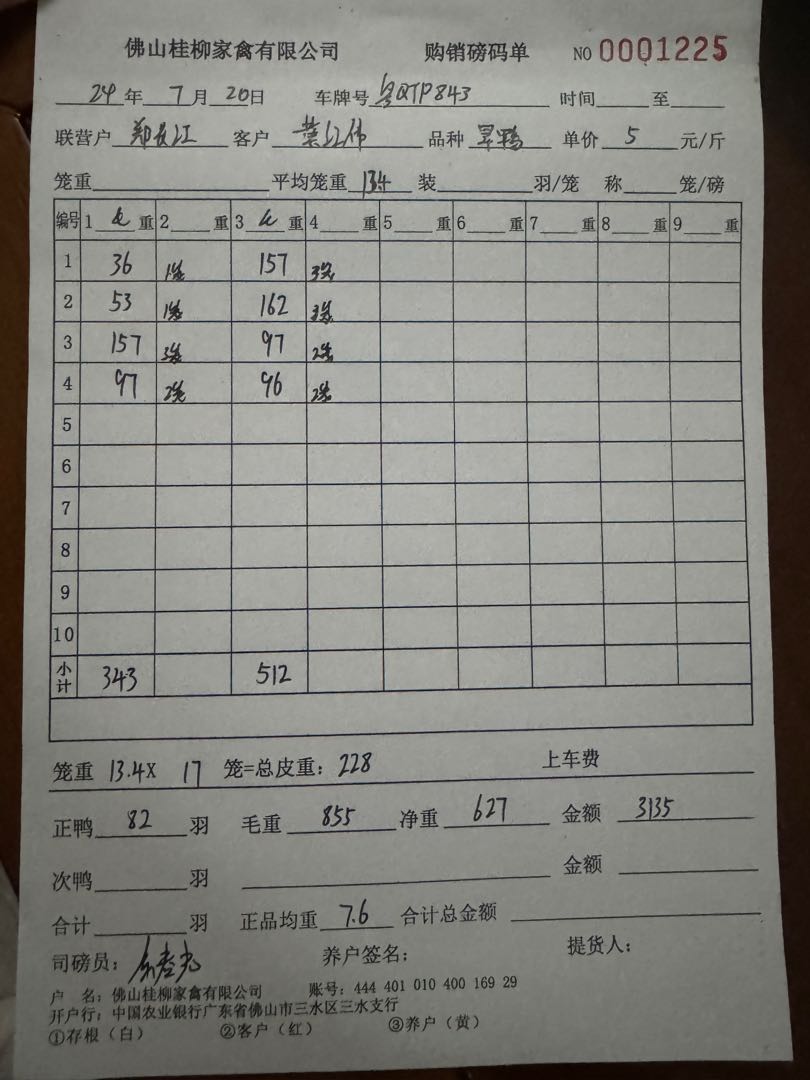 佛山桂柳家禽有限公司 购销磅码单 NO 0001225
24年7月20日 车牌号 粤QTP843 时间 至
联营户 郑长江 客户 叶红伟 品种 旱鸭 单价 5 元/斤
笼重 平均笼重 13.4 装 羽/笼 称 笼/磅
编号 1 重 2 重 3 重 4 重 5 重 6 重 7 重 8 重 9 重
1 36 1笼 157 3笼
2 53 1笼 162 3笼
3 157 3笼 97 2笼
4 97 2笼 96 2笼
5
6
7
8
9
10
小计 343 512
笼重 13.4X 17 笼=总皮重: 228 上车费
正鸭 82 羽 毛重 855 净重 627 金额 3135
次鸭 羽 金额
合计 羽 正品均重 7.6 合计总金额
司磅员: 养户签名: 提货人:
户 名: 佛山桂柳家禽有限公司 账号: 444 401 010 400 169 29
开户行: 中国农业银行广东省佛山市三水区三水支行
①存根(白) ②客户(红) ③养户(黄)